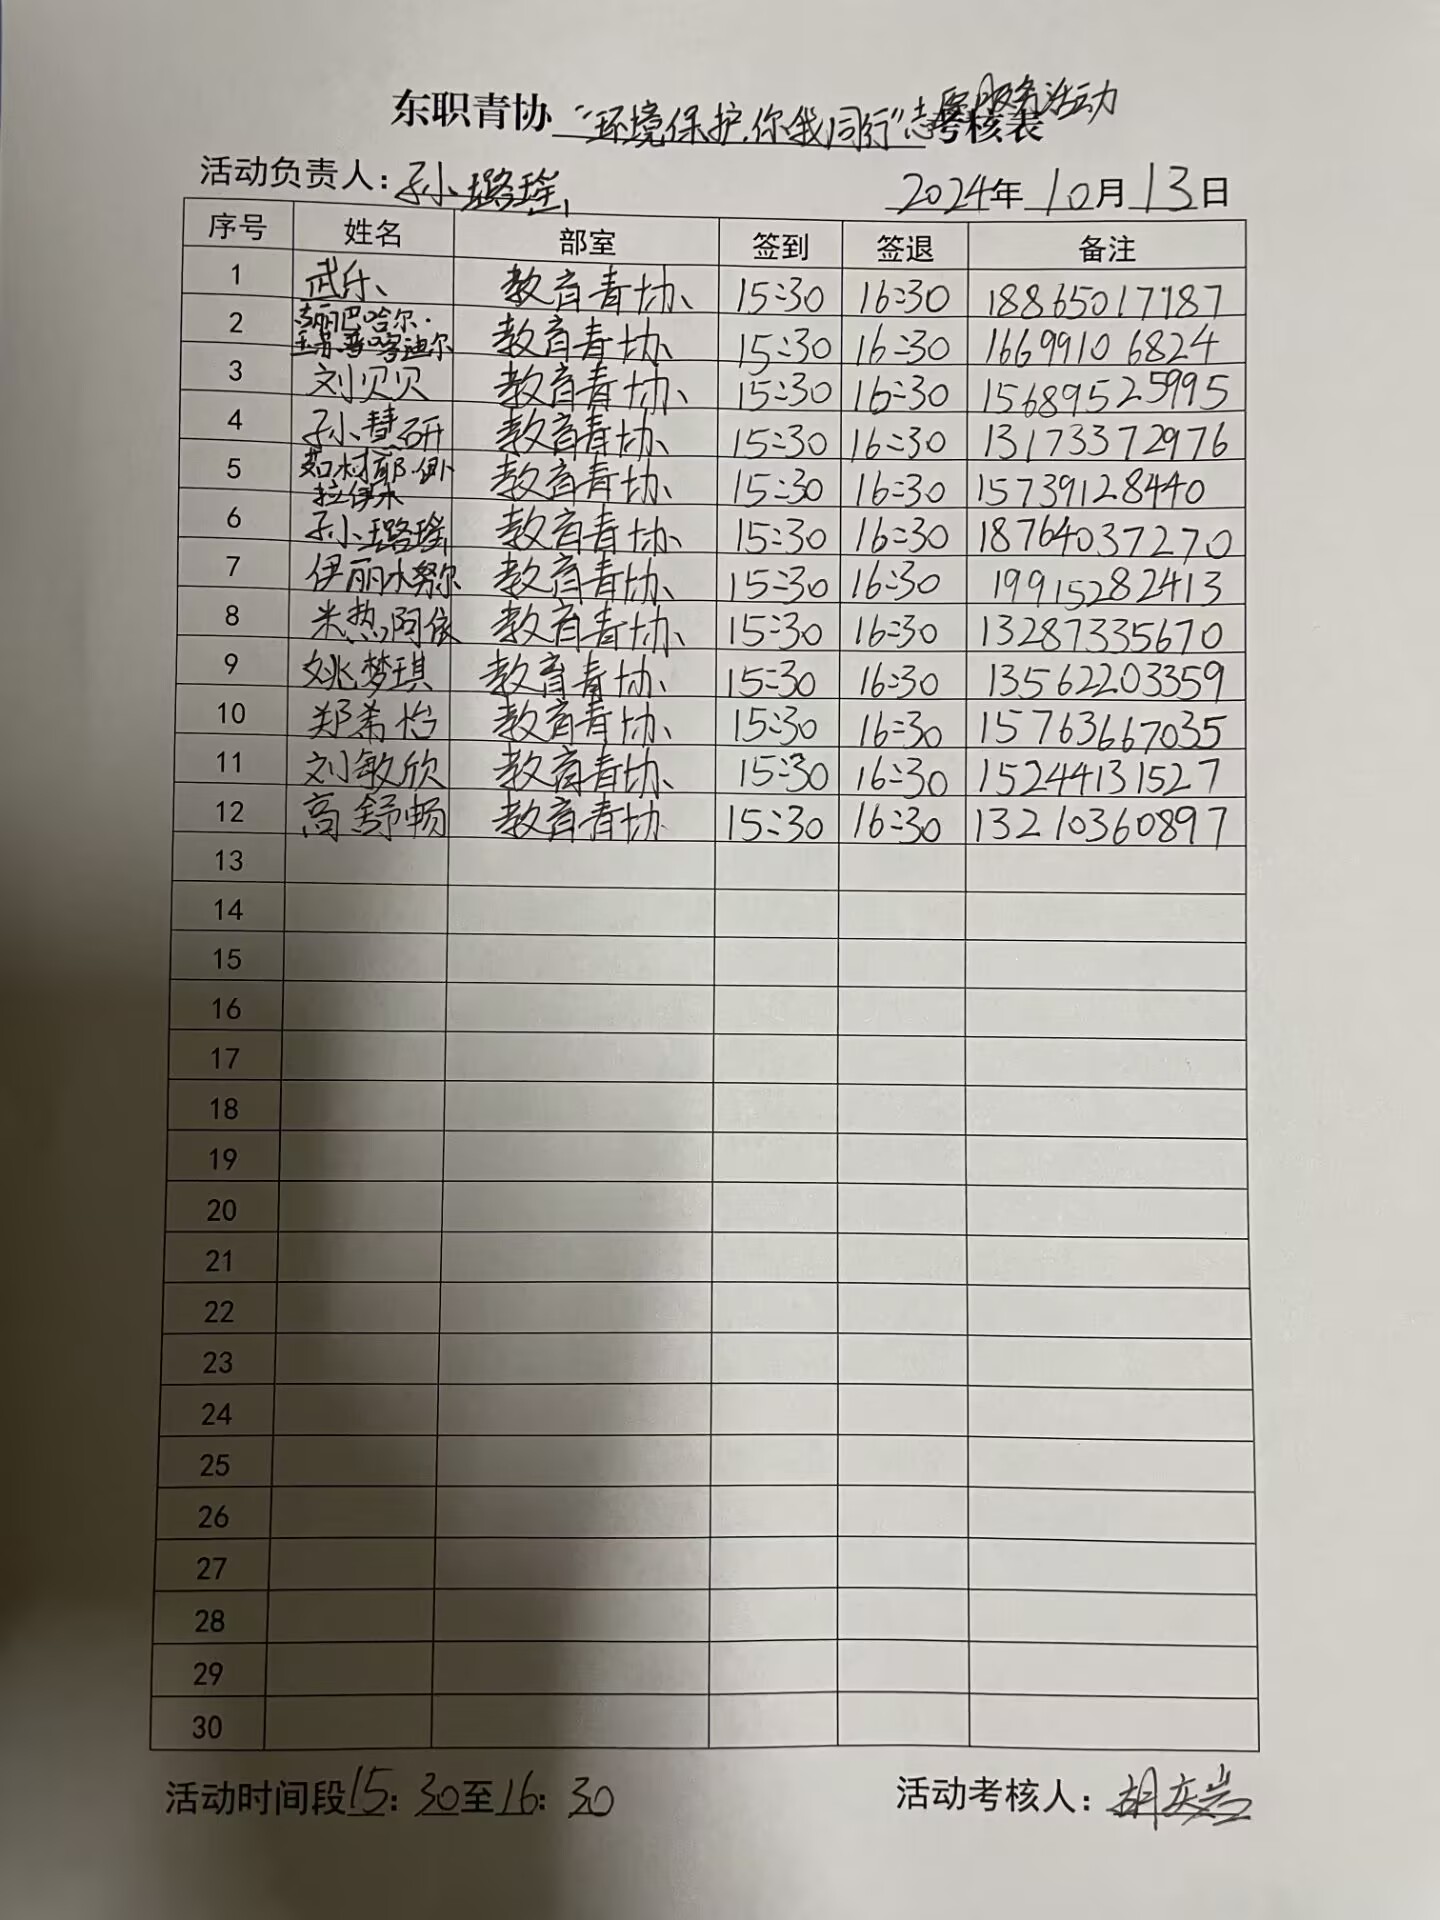 东职青协 “环境保护,你我同行”志愿服务活动 考核表
活动负责人: 孙璐瑶 2024年 10月 13日
序号 姓名 部室 签到 签退 备注
1 武乐 教育青协 15:30 16:30 18865017187
2 教育青协 15:30 16:30 16699106824
3 刘贝贝 教育青协 15:30 16:30 15689525995
4 孙慧研 教育青协 15:30 16:30 13173372976
5 教育青协 15:30 16:30 15739128440
6 孙璐瑶 教育青协 15:30 16:30 18764037270
7 伊丽水努尔 教育青协 15:30 16:30 19915282413
8 米热阿依 教育青协 15:30 16:30 13287335670
9 姚梦琪 教育青协 15:30 16:30 13562203359
10 郑希怡 教育青协 15:30 16:30 15763667035
11 刘敏欣 教育青协 15:30 16:30 15244131527
12 高舒畅 教育青协 15:30 16:30 13210360897
13
14
15
16
17
18
19
20
21
22
23
24
25
26
27
28
29
30
活动时间段15:30至16:30 活动考核人: